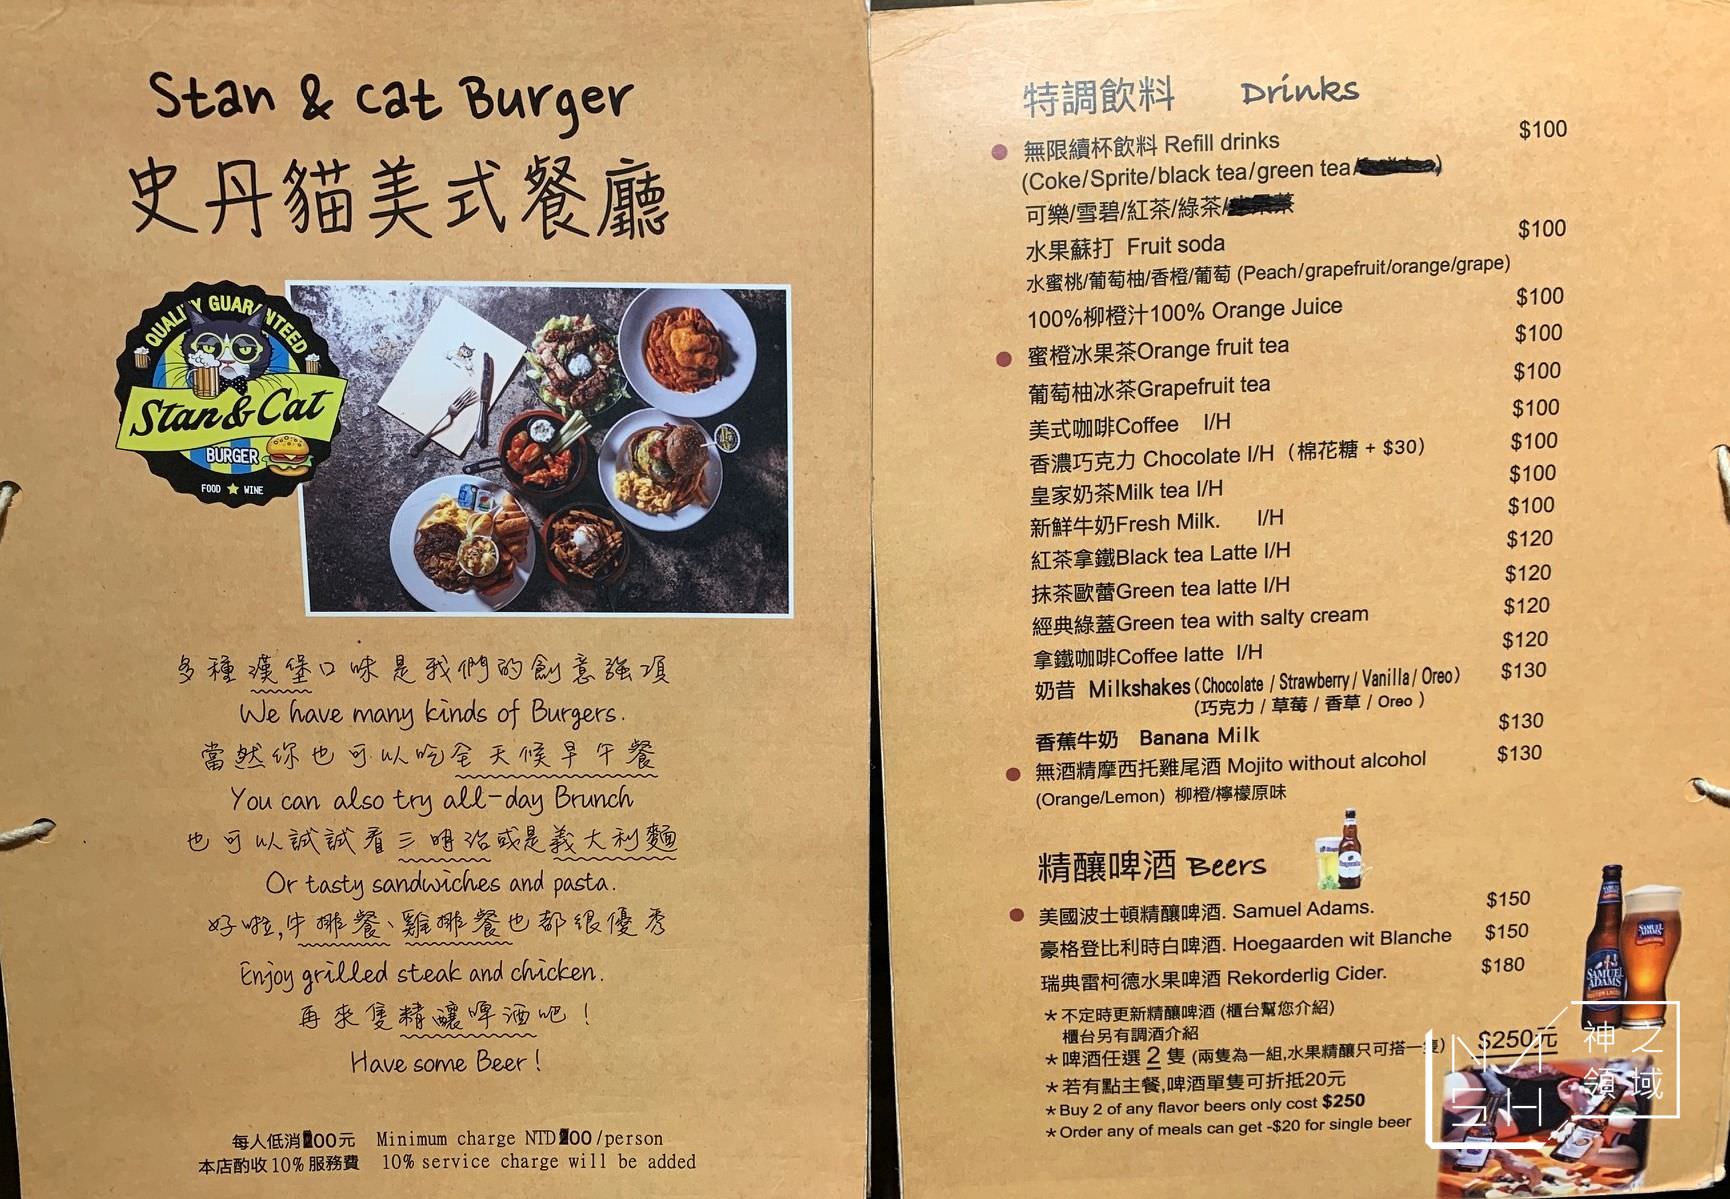 Stan & Cat Burger
史丹貓美式餐廳
QUALITY GUARANTEED
Stan & Cat
BURGER
FOOD ★ WINE
多種漢堡口味是我們的創意強項
We have many kinds of Burgers.
當然你也可以吃全天候早午餐
You can also try all-day Brunch
也可以試試看三明治或是義大利麵
Or tasty sandwiches and pasta.
好啦,牛排餐、雞排餐也都很優秀
Enjoy grilled steak and chicken.
再來隻精釀啤酒吧!
Have some Beer!
每人低消 00元 Minimum charge NTD 00/person
本店酌收10%服務費 10% service charge will be added
特調飲料 Drinks
無限續杯飲料 Refill drinks $100
(Coke/Sprite/black tea/green tea/ )
可樂/雪碧/紅茶/綠茶/
水果蘇打 Fruit soda $100
水蜜桃/葡萄柚/香橙/葡萄 (Peach/grapefruit/orange/grape)
100%柳橙汁100% Orange Juice $100
蜜橙冰果茶Orange fruit tea $100
葡萄柚冰茶Grapefruit tea $100
美式咖啡Coffee I/H $100
香濃巧克力 Chocolate I/H (棉花糖 + $30) $100
皇家奶茶Milk tea I/H $100
新鮮牛奶Fresh Milk. I/H $100
紅茶拿鐵Black tea Latte I/H $120
抹茶歐蕾Green tea latte I/H $120
經典綠蓋Green tea with salty cream $120
拿鐵咖啡Coffee latte I/H $120
奶昔 Milkshakes(Chocolate / Strawberry / Vanilla / Oreo) $130
(巧克力 / 草莓 / 香草 / Oreo )
香蕉牛奶 Banana Milk $130
無酒精摩西托雞尾酒 Mojito without alcohol $130
(Orange/Lemon) 柳橙/檸檬原味
精釀啤酒 Beers
美國波士頓精釀啤酒. Samuel Adams. $150
豪格登比利時白啤酒. Hoegaarden wit Blanche $150
瑞典雷柯德水果啤酒 Rekorderlig Cider. $180
*不定時更新精釀啤酒 (櫃台幫您介紹)
櫃台另有調酒介紹
*啤酒任選 2 隻 (兩隻為一組,水果精釀只可搭一隻) $250元
*若有點主餐,啤酒單隻可折抵20元
*Buy 2 of any flavor beers only cost $250
*Order any of meals can get -$20 for single beer
SAMUEL ADAMS
SAMUEL ADAMS
神之領域